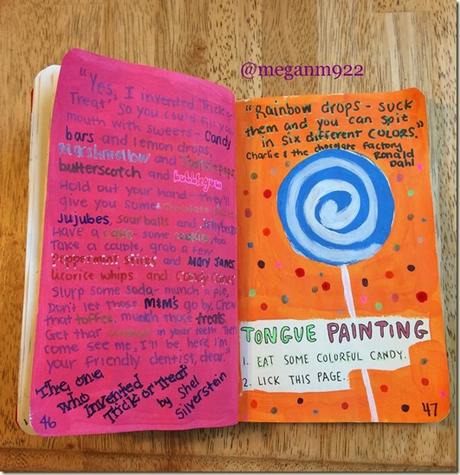 @meganm922
"Yes, I invented 'Trick or
Treat' So you could fill your
mouth with sweets - Candy
bars and lemon drops,
Marshmellow and
butterscotch and bubblegum
Hold out your hand - they'll
give you some
jujubes, sour balls and jellybeans
Have a some too
Take a couple, grab a few
Peppermint sticks and Mary Janes
licorice whips and candy canes
Slurp some soda - munch a pie,
Don't let those M&M's go by, Chew
that toffee, munch those treats
Get that in your teeth. Then
come see me, I'll be, here I'm
your friendly dentist, dear."
The one
who Invented
Trick or Treat
by Shel
Silverstein
46
"Rainbow drops - suck
them and you can spit
in six different COLORS."
Charlie & the chocolate factory
Ronald
Dahl
TONGUE PAINTING
1. EAT SOME COLORFUL CANDY.
2. LICK THIS PAGE.
47